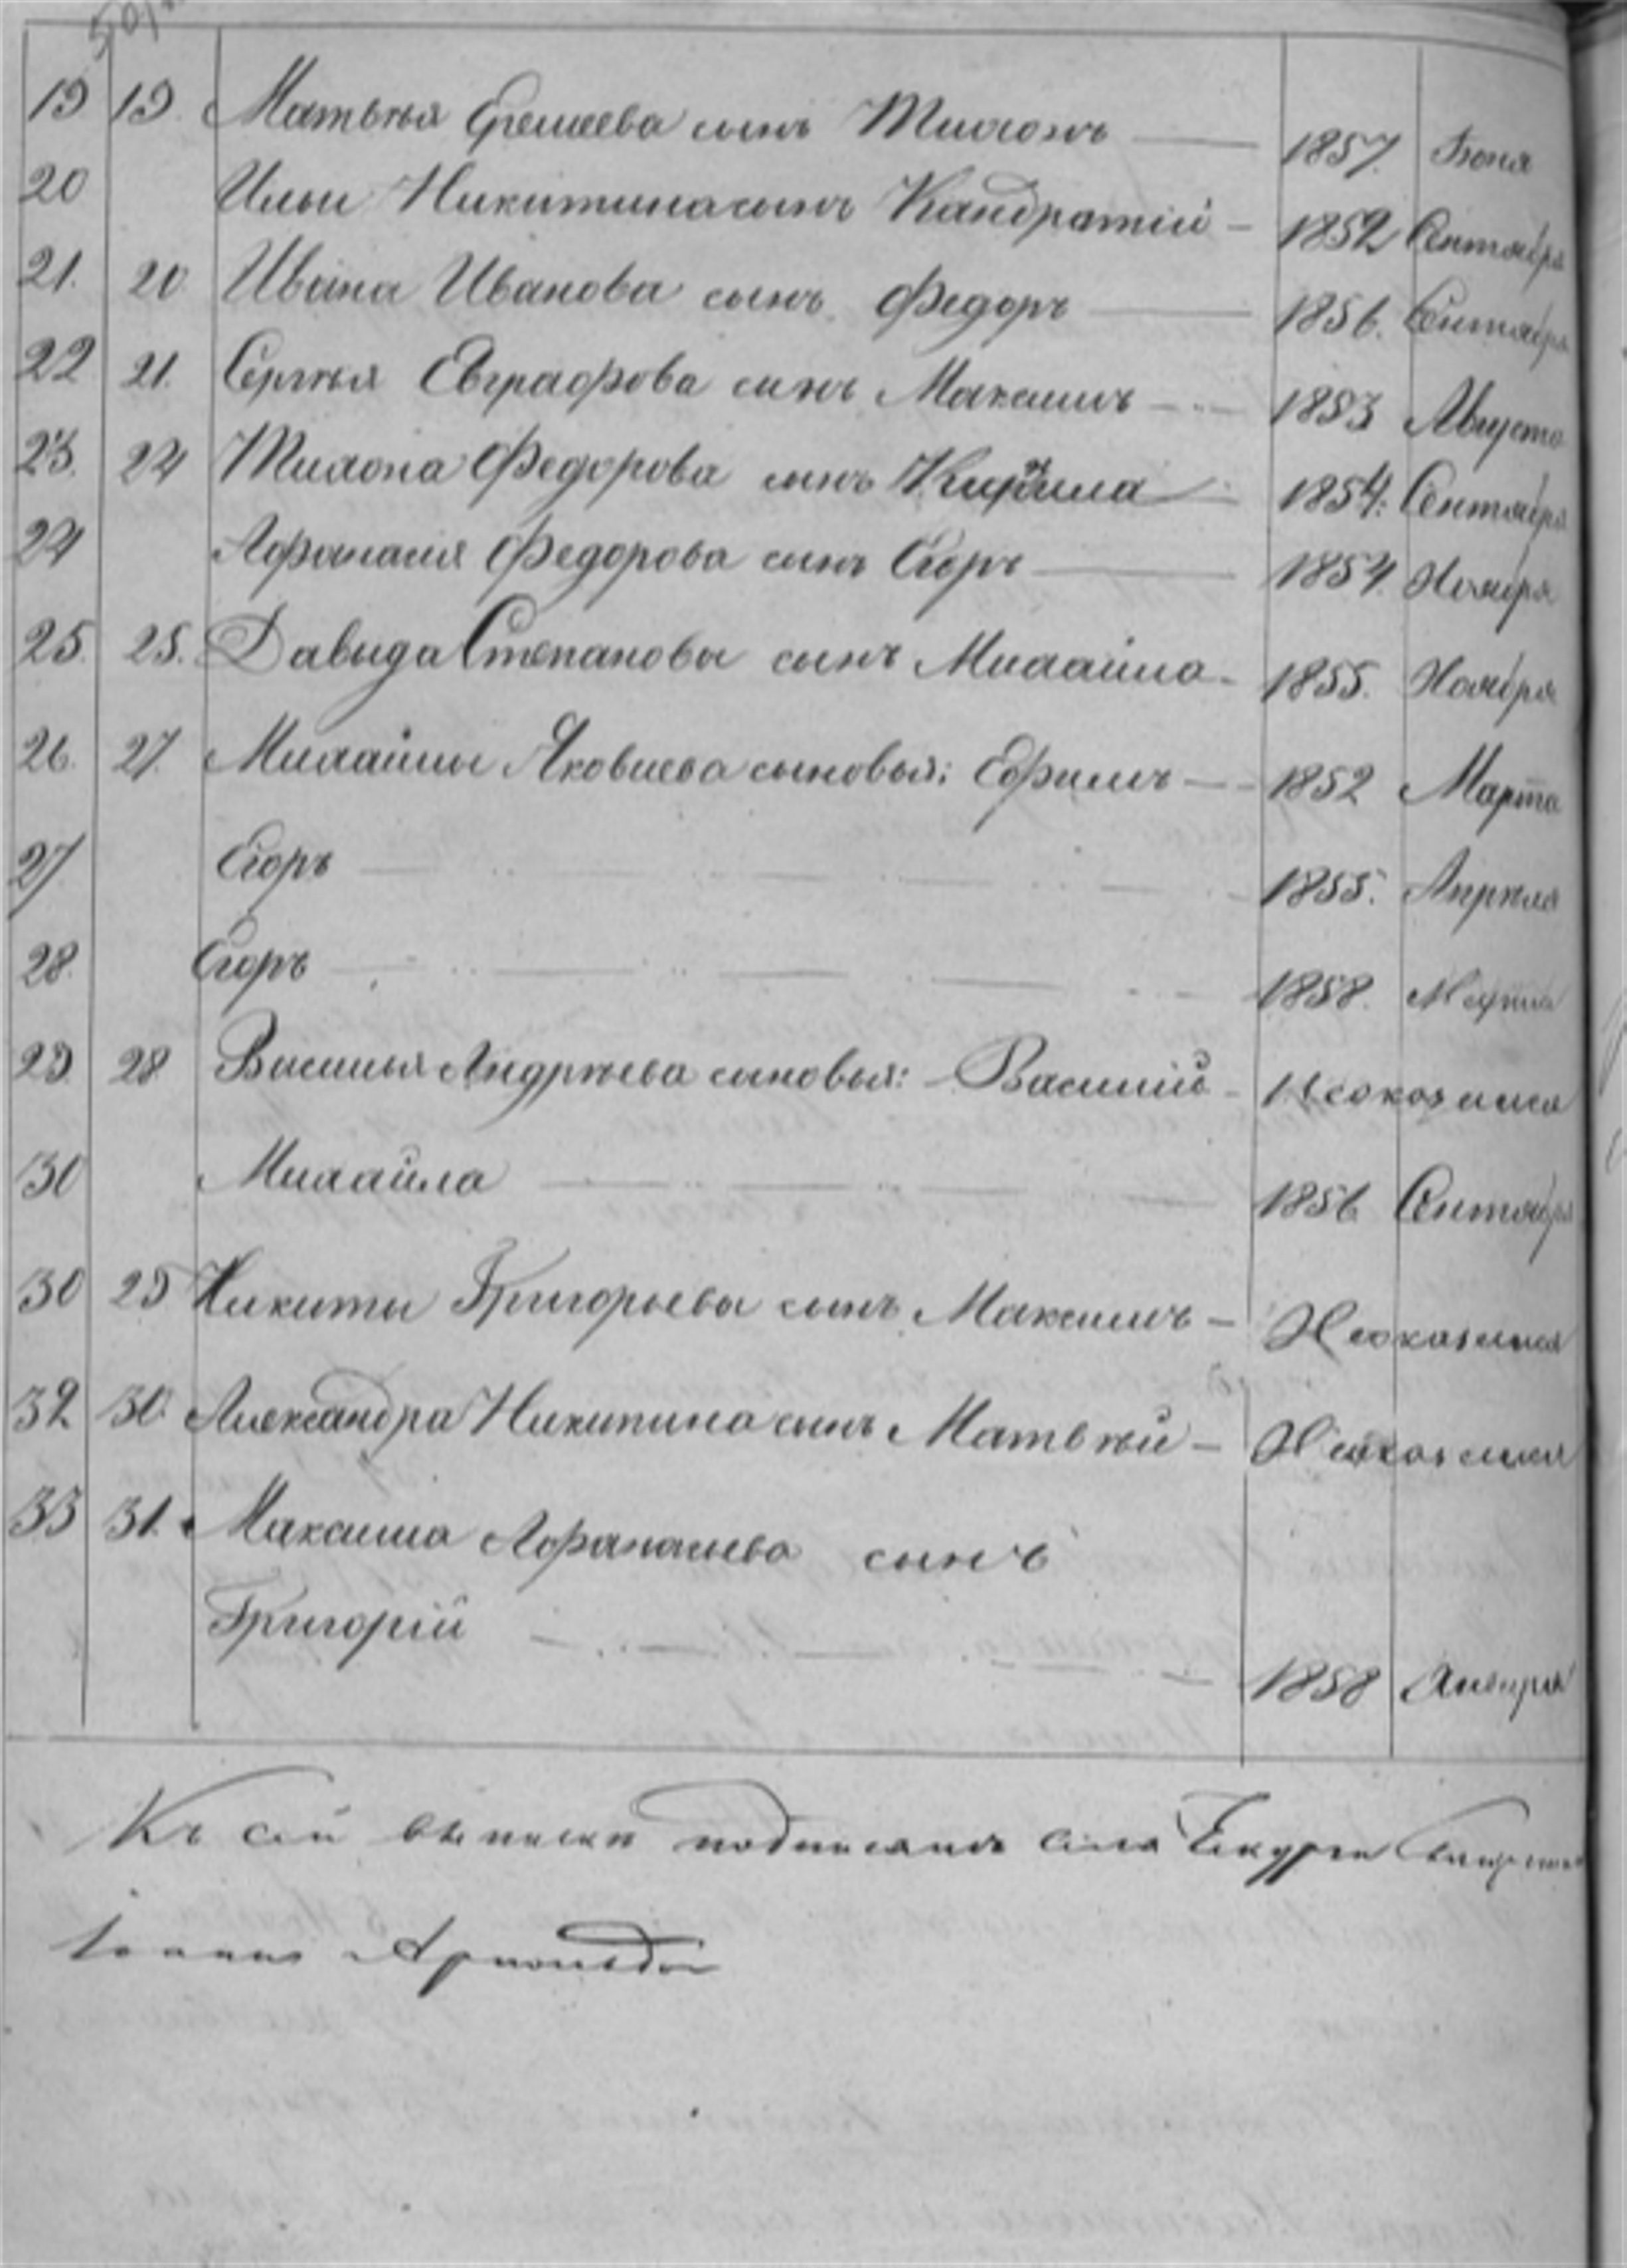 19 19. Матвѣя Еремеева сынъ Тихонъ — 1857. Іюня
20 Ильи Никитина сынъ Кандратій — 1852 Сентября
21. 20 Ивана Иванова сынъ Федоръ — 1856. Сентября
22 21. Сергѣя Евграфова сынъ Максимъ — 1853 Августа
23. 24 Тихона Федорова сынъ Кирила — 1854. Сентября
24 Афанасія Федорова сынъ Егоръ — 1854. Ноября
25. 25. Давыда Степанова сынъ Михайла — 1855. Ноября
26. 27. Михайлы Яковлева сыновья: Ефимъ — 1852 Марта
27 Егоръ — 1855. Апрѣля
28. Егоръ — 1858. Марта
29 28 Василья Андрѣева сыновья: Василій — Неоказался
30 Михайла — 1856 Сентября
30 29 Никиты Григорьева сынъ Максимъ — Неоказался
32 30. Александра Никитина сынъ Матвѣй — Неоказался
33 31. Максима Афанасьева сынъ
Григорій — 1858 Января
Къ сей выписки подписался села
Іоаннъ